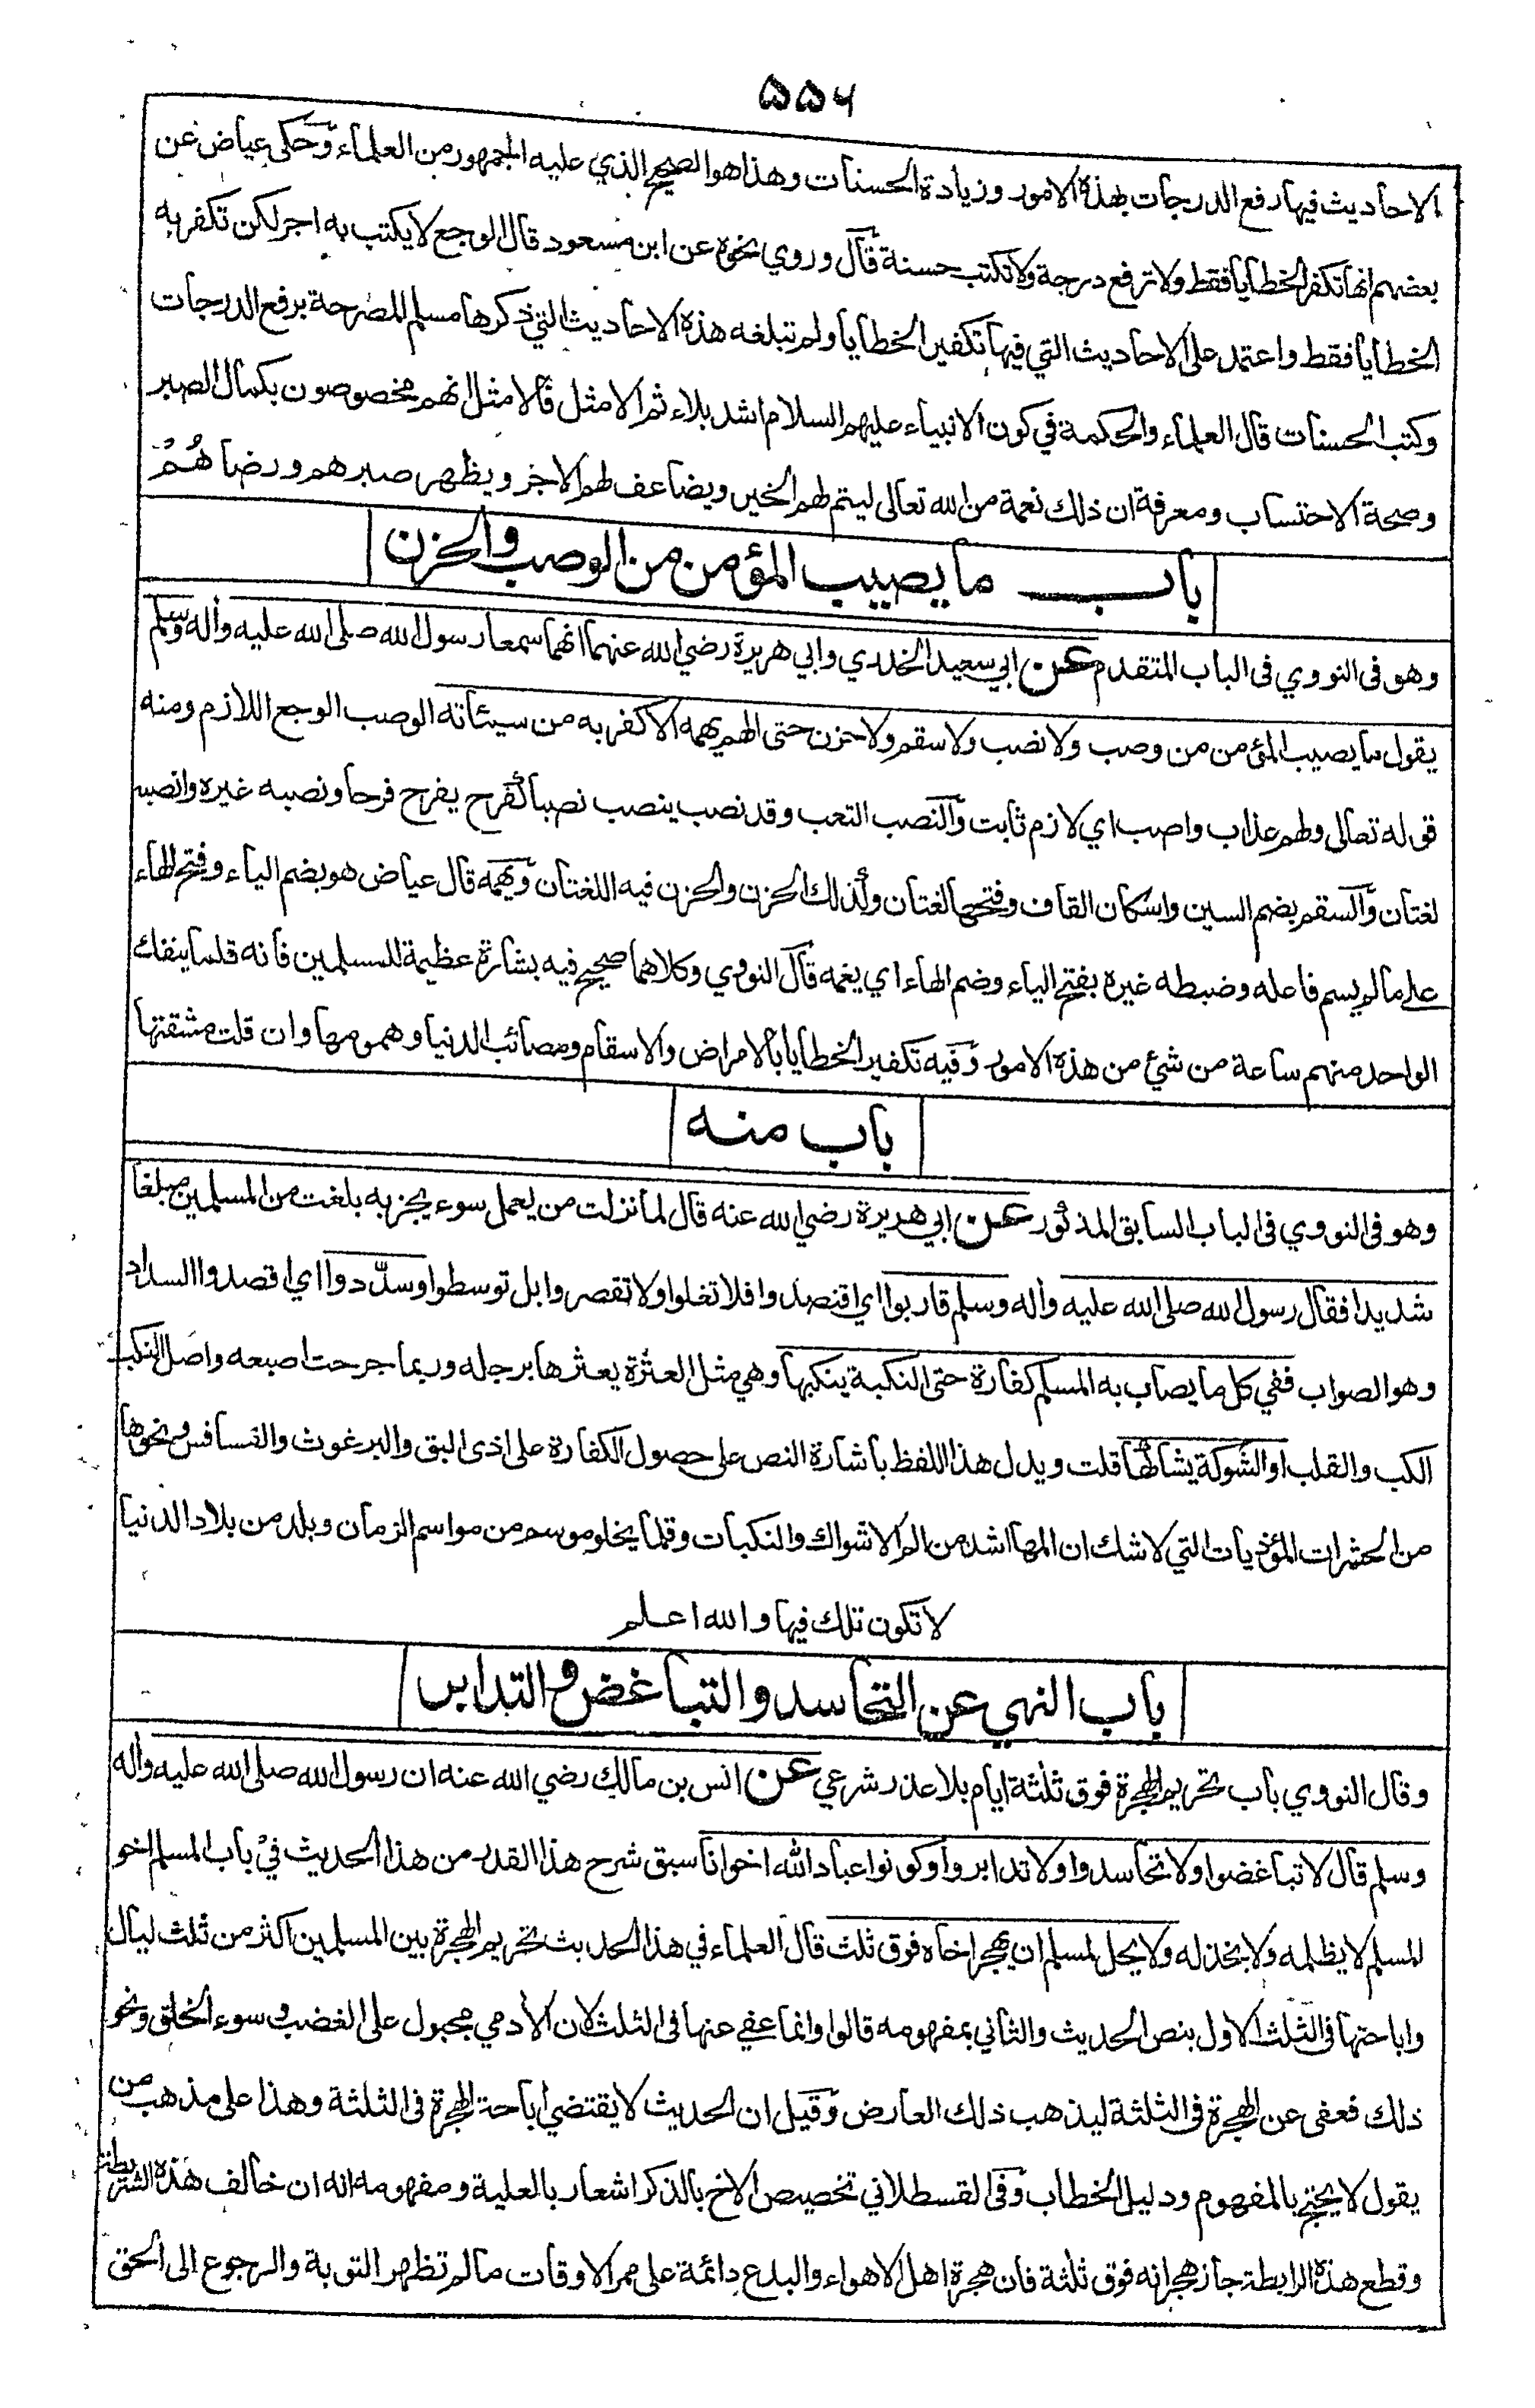 ۵۵۶
الاحاديث فيها رفع الدرجات بهذه الامور وزيادة الحسنات وهذا هو الصحيح الذي عليه الجمهور من العلماء وحكى عياض عن
بعضهم انها تكفر الخطايا فقط ولا ترفع درجة ولا تكتب حسنة قال وروي نحوه عن ابن مسعود قال الوجع لا يكتب به اجر لكن تكفر به
الخطايا فقط واعتمد على الاحاديث التي فيها تكفير الخطايا ولم تبلغه هذه الاحاديث التي ذكرها مسلم المصرحة برفع الدرجات
وكتب الحسنات قال العلماء والحكمة في كون الانبياء عليهم السلام اشد بلاء ثم الامثل فالامثل انهم مخصوصون بكمال الصبر
وصحة الاحتساب ومعرفة ان ذلك نعمة من الله تعالى ليتم لهم الخير ويضاعف لهم الاجر ويظهر صبرهم ورضاهُمْ
باب ما يصيب المؤمن من الوصب والحزن
وهو في النووي في الباب المتقدم عن ابي سعيد الخدري وابي هريرة رضي الله عنهما انهما سمعا رسول الله صلى الله عليه وأله وسلم
يقول ما يصيب المئ من من وصب ولا نصب ولا سقم ولا حزن حتى الهم يهمه الا كفر به من سيئاته الوصب الوجع اللازم ومنه
قوله تعالى ولهم عذاب واصب اي لازم ثابت والنصب التعب وقد نصب ينصب نصبا كفرح يفرح فرحا ونصبه غيره وانصبه
لغتان والسقم بضم السين واسكان القاف وفتحهما لغتان وكذلك الحزن والحزن فيه اللغتان ويهمه قال عياض هو بضم الياء وفتح الهاء
على ما لم يسم فاعله وضبطه غيره بفتح الياء وضم الهاء اي يغمه قال النووي وكلاهما صحيح فيه بشارة عظيمة للمسلمين فانه قلما ينفك
الواحد منهم ساعة من شئ من هذه الامور وفيه تكفير الخطايا بالامراض والاسقام ومصائب الدنيا وهمومها وان قلت مشقتها
باب منه
وهو في النووي في الباب السابق المذكور عن ابي هريرة رضي الله عنه قال لما نزلت من يعمل سوء يجز به بلغت من المسلمين مبلغا
شديدا فقال رسول الله صلى الله عليه وأله وسلم قاربوا اي اقتصدوا فلا تغلوا ولا تقصروا بل توسطوا وسدّدوا اي اقصدوا السداد
وهو الصواب ففي كل ما يصاب به المسلم كفارة حتى النكبة ينكبها وهي مثل العثرة يعثرها برجله وربما جرحت اصبعه واصل النكب
الكب والقلب او الشوكة يشاكها قلت ويدل هذا اللفظ باشارة النص على حصول الكفارة على اذى البق والبرغوث والفسافس ونحوها
من الحشرات المؤذيات التي لا شك ان المها اشد من الم الاشواك والنكبات وقلما يخلو موسم من مواسم الزمان وبلد من بلاد الدنيا
لا تكون تلك فيها والله اعلم
باب النهي عن التحاسد والتباغض والتدابر
وقال النووي باب تحريم الهجرة فوق ثلثة ايام بلا عذر شرعي عن انس بن مالك رضي الله عنه ان رسول الله صلى الله عليه وأله
وسلم قال لا تباغضوا ولا تحاسدوا ولا تدابروا وكونوا عباد الله اخوانا سبق شرح هذا القدر من هذا الحديث في باب المسلم اخو
المسلم لا يظلمه ولا يخذله ولا يحل لمسلم ان يهجر اخاه فوق ثلث قال العلماء في هذا الحديث تحريم الهجرة بين المسلمين اكثر من ثلث ليال
واباحتها في الثلث الاول بنص الحديث والثاني بمفهومه قالوا وانما عفي عنها في الثلث لان الأدمي مجبول على الغضب وسوء الخلق ونحو
ذلك فعفى عن الهجرة في الثلثة ليذهب ذلك العارض وقيل ان الحديث لا يقتضي اباحة الهجرة في الثلثة وهذا على مذهب من
يقول لا يحتج بالمفهوم ودليل الخطاب وفي القسطلاني تخصيص الاخ بالذكر اشعار بالعلية ومفهومه انه ان خالف هذه الشريطة
وقطع هذه الرابطة جاز هجرانه فوق ثلثة فان هجرة اهل الاهواء والبدع دائمة على ممر الاوقات ما لم تظهر التوبة والرجوع الى الحق